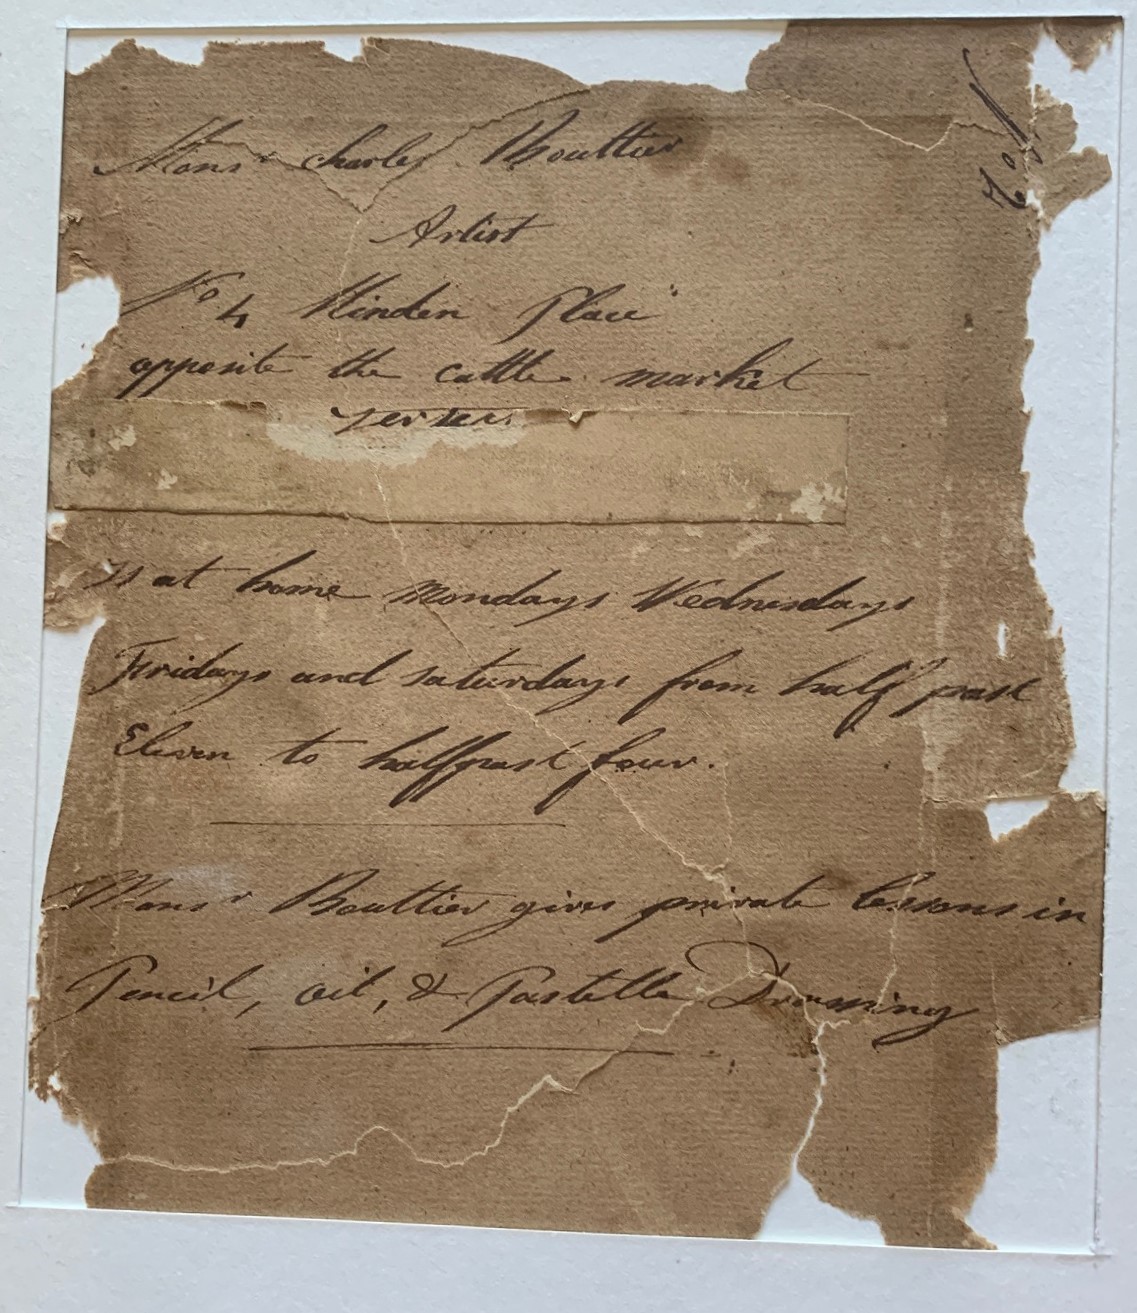 Monsr Charles Bouttier
Artist
No 4 Minden Place
opposite the cattle market
Jersey.
is at home Mondays Wednesdays
Fridays and Saturdays from half past
Eleven to halfpast four.
Monsr Bouttier gives private lessons in
Pencil, oil, & Pastelle Drawing